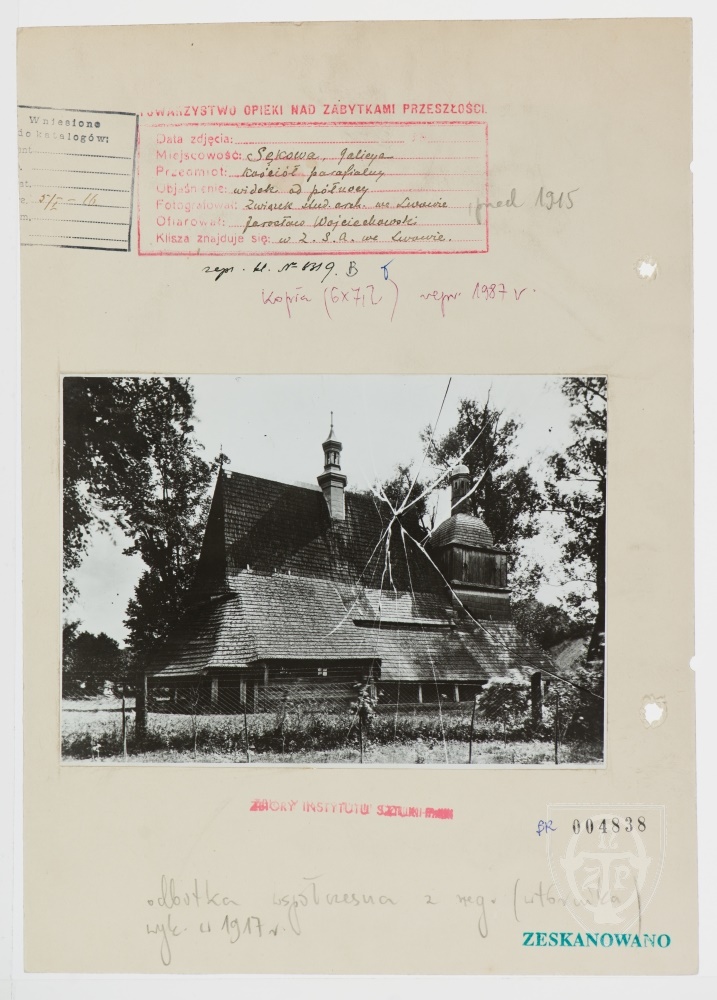 TOWARZYSTWO OPIEKI NAD ZABYTKAMI PRZESZŁOŚCI.
Wniesiono
do katalogów:
5/I – 16
Data zdjęcia:
Miejscowość: Sękowa, Galicya
Przedmiot: kościół parafialny
Objaśnienie: widok od północy
Fotografował: Związek stud. arch. we Lwowie
Ofiarował: Jarosław Wojciechowski
Klisza znajduje się: w Z. S. A. we Lwowie.
, przed 1915
repr. kl. No 8319. B
Kopia (6x7,2) repr. 1987 r.
ZBIORY INSTYTUTU SZTUKI PAN
BR 004838
odbitka współczesna z neg. (wtórnika)
wyk. w 1917 r.
ZESKANOWANO